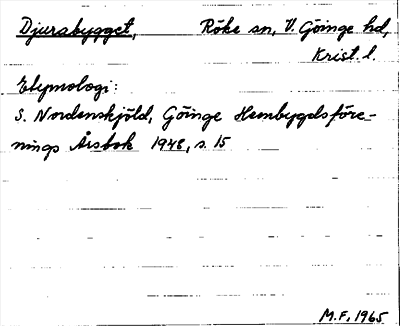 Djurabygget, Röke sn, V. Göinge hd,
Krist. l.
Etymologi:
S. Nordenskjöld, Göinge Hembygdsföre-
nings Årsbok 1948, s. 15
M.F. 1965